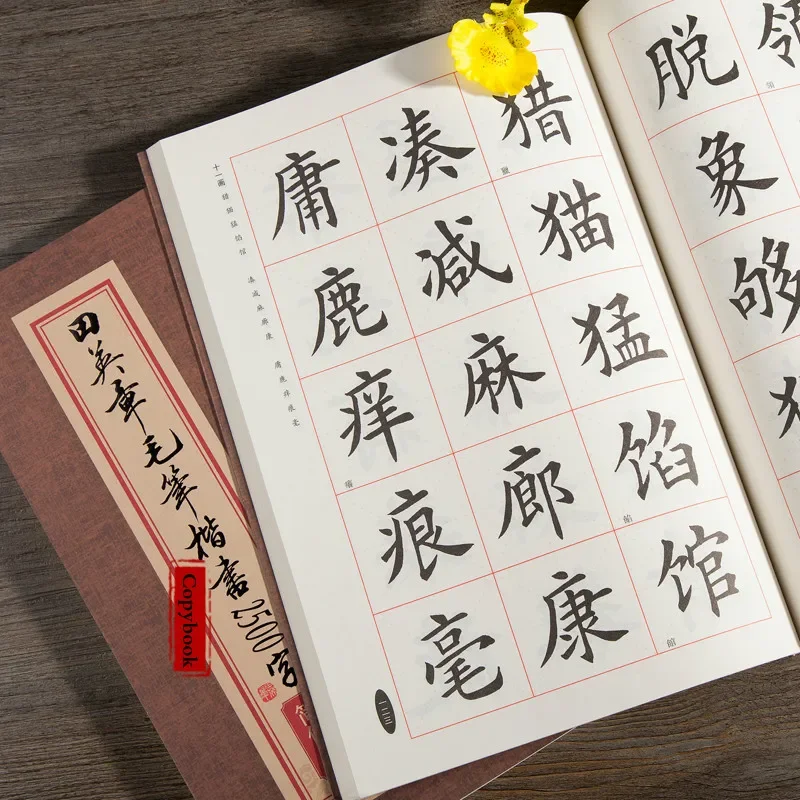 田英章毛筆楷書2500字
Copybook
领
領
脱
象
够
猎
獵
猫
猛
馅
餡
馆
館
凑
减
麻
廊
康
庸
鹿
痒
癢
痕
毫
十一画 猎猫猛馅馆 凑减麻廊康 庸鹿痒痕毫
一二三